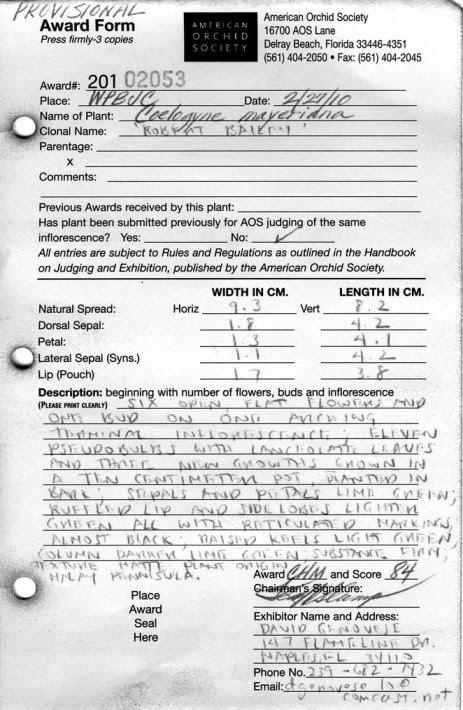 PROVISIONAL
Award Form
Press firmly-3 copies
AMERICAN
ORCHID
SOCIETY
American Orchid Society
16700 AOS Lane
Delray Beach, Florida 33446-4351
(561) 404-2050 • Fax: (561) 404-2045
Award#: 201 02053
Place: WPBJC Date: 2/27/10
Name of Plant: Coelogyne mayeriana
Clonal Name: 'ROBERT
Parentage:
x
Comments:
Previous Awards received by this plant:
Has plant been submitted previously for AOS judging of the same
inflorescence? Yes: No: ✓
All entries are subject to Rules and Regulations as outlined in the Handbook
on Judging and Exhibition, published by the American Orchid Society.
WIDTH IN CM. LENGTH IN CM.
Natural Spread: Horiz 9.3 Vert 8.2
Dorsal Sepal: 1.8 4.2
Petal: 1.3 4.1
Lateral Sepal (Syns.) 1.1 4.2
Lip (Pouch) 1.7 3.8
Description: beginning with number of flowers, buds and inflorescence
(PLEASE PRINT CLEARLY) SIX OPEN FLAT FLOWERS AND
ONE BUD ON ONE ARCHING
TERMINAL INFLORESCENCE; ELEVEN
PSEUDOBULBS WITH LANCEOLATE LEAVES
AND THREE NEW GROWTHS GROWN IN
A TEN CENTIMETER POT, PLANTED IN
BARK; SEPALS AND PETALS LIME GREEN;
RUFFLED LIP AND SIDE LOBES LIGHTER
GREEN ALL WITH RETICULATED MARKINGS,
ALMOST BLACK; RAISED KEELS LIGHT GREEN;
COLUMN DARKER LIME GREEN; SUBSTANCE FIRM;
TEXTURE MATTE; PLANT ORIGIN
MALAY PENNISULA.
Award CHM and Score 84
Chairman's Signature:
Place
Award
Seal
Here
Exhibitor Name and Address:
DAVID GENOVESE
147 FLAME LINE DR.
NAPLES, FL 34110
Phone No. 239-682-1432
Email: comcast.net